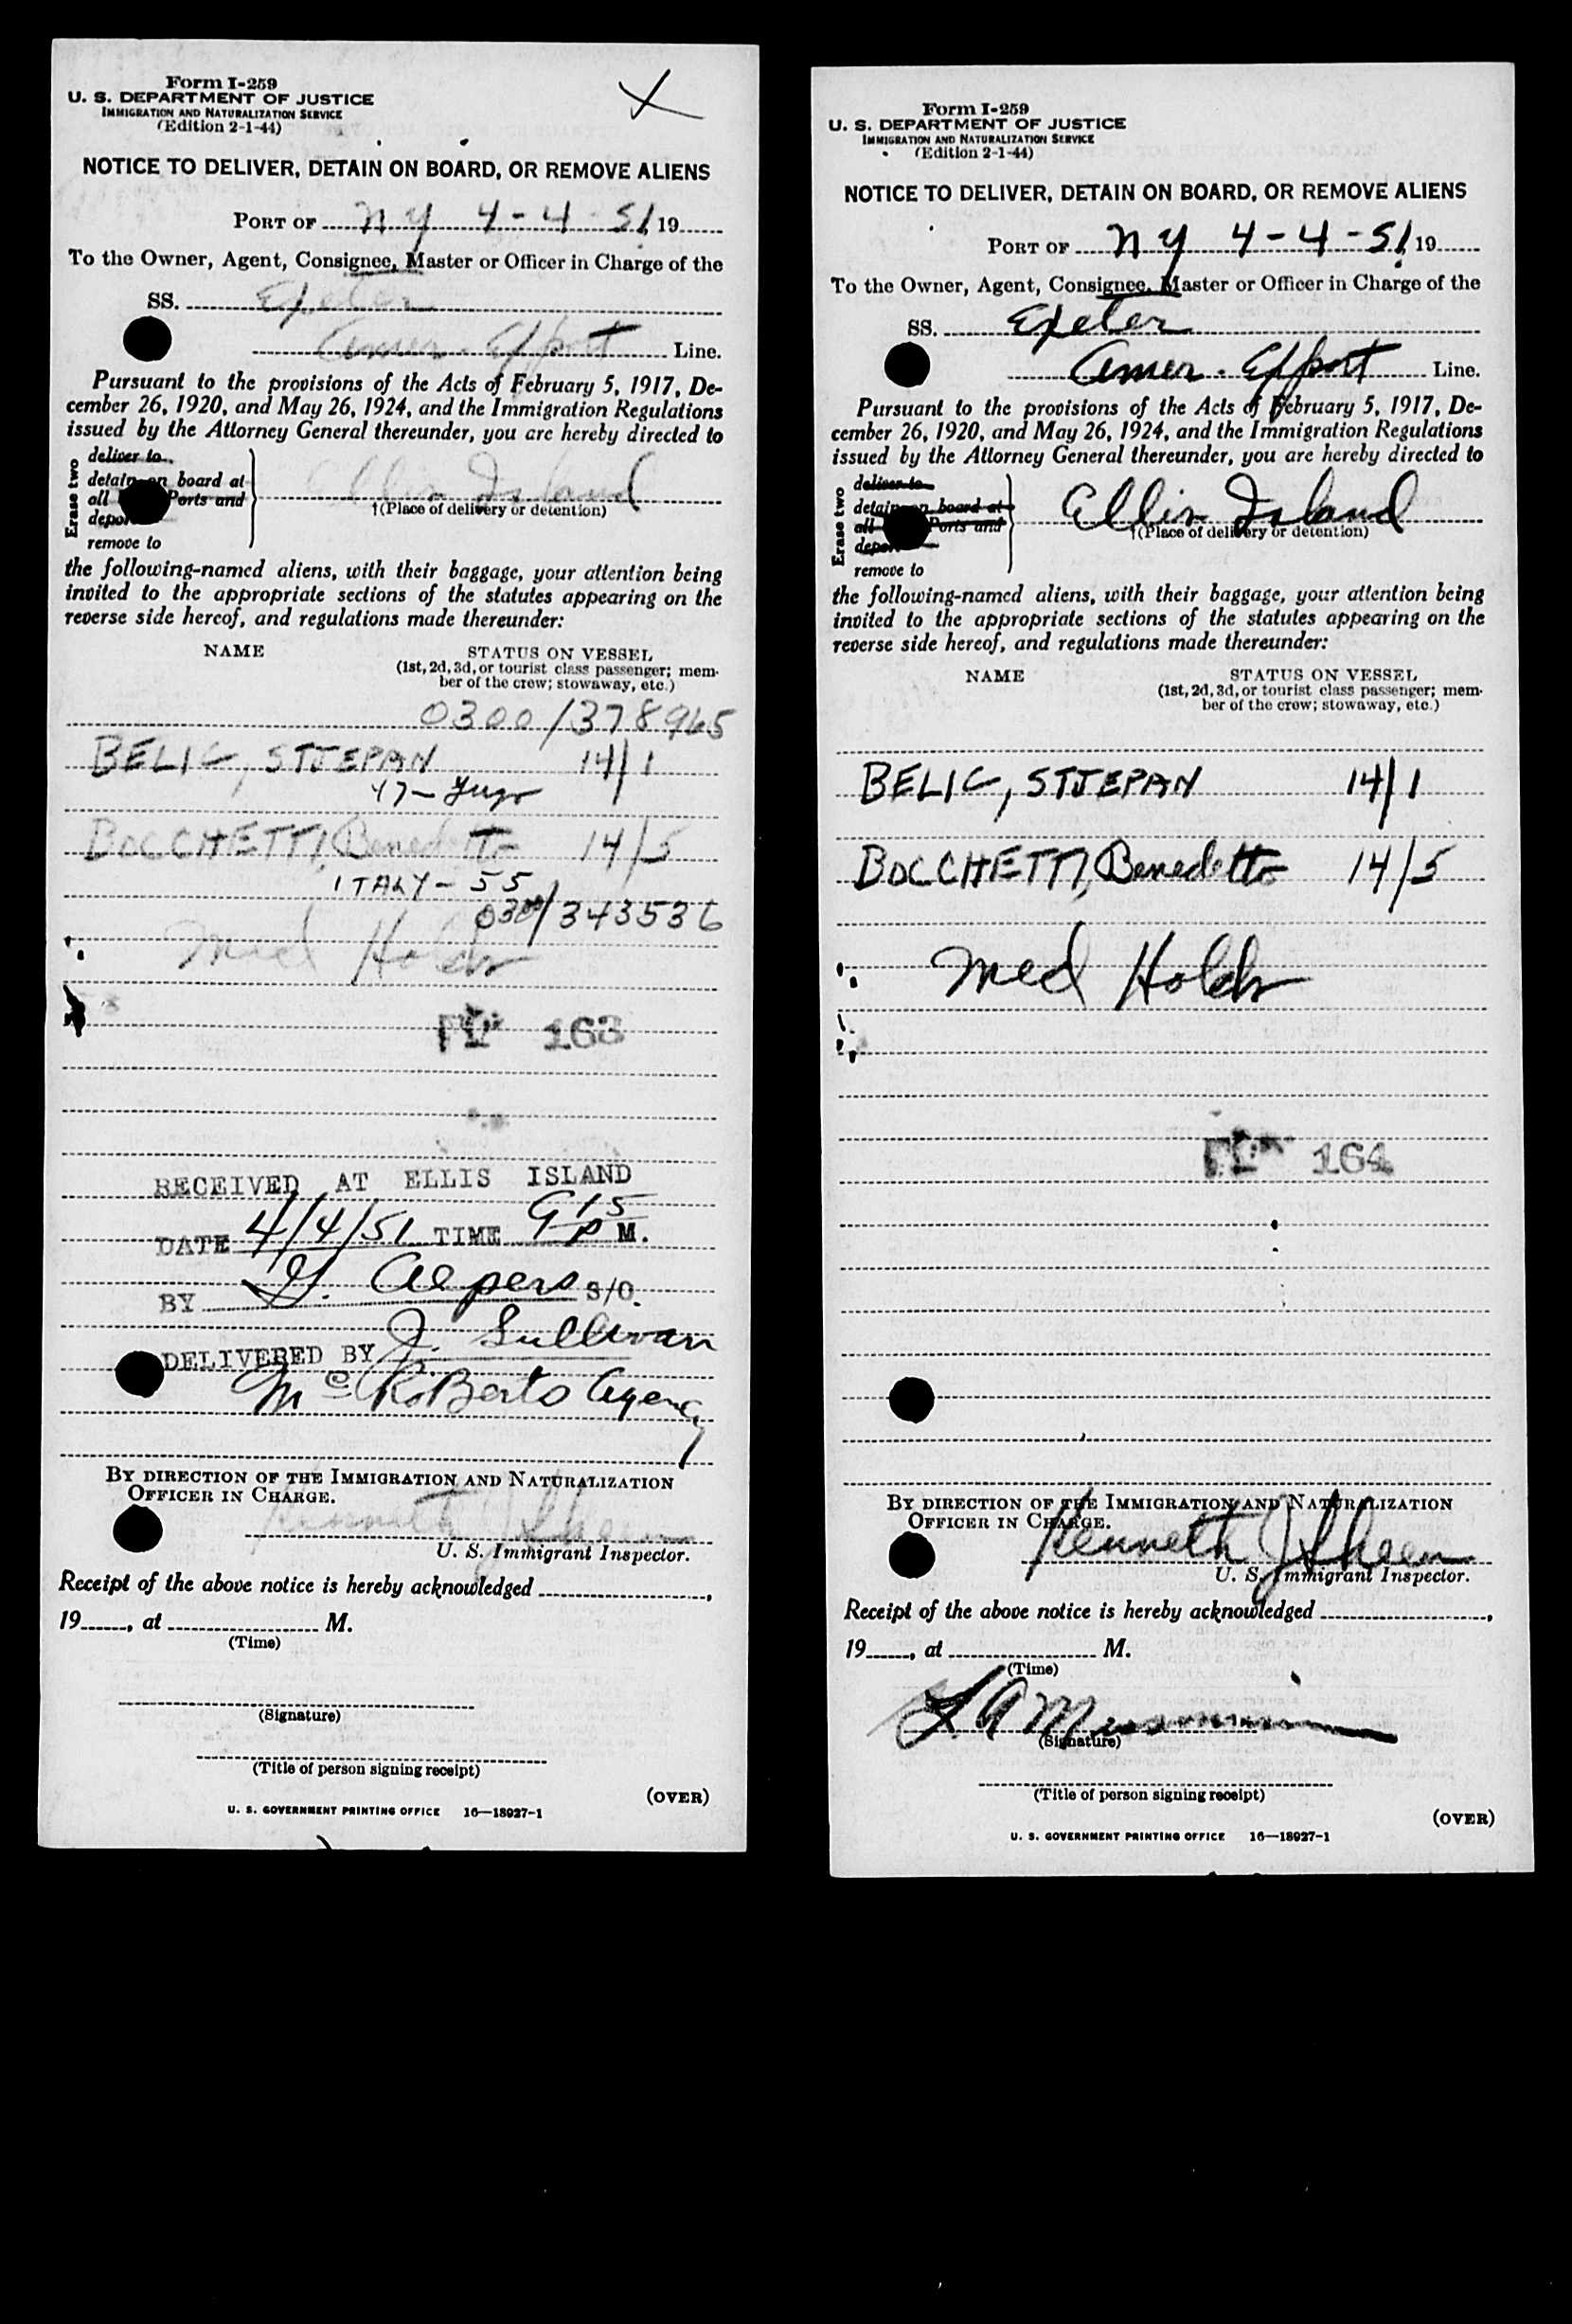 Form I-259
U. S. DEPARTMENT OF JUSTICE
IMMIGRATION AND NATURALIZATION SERVICE
(Edition 2-1-44)
NOTICE TO DELIVER, DETAIN ON BOARD, OR REMOVE ALIENS
PORT OF NY 4-4-51, 19
To the Owner, Agent, Consignee, Master or Officer in Charge of the
SS. Exeter
Amer. Export Line.
Pursuant to the provisions of the Acts of February 5, 1917, De-
cember 26, 1920, and May 26, 1924, and the Immigration Regulations
issued by the Attorney General thereunder, you are hereby directed to
Erase two
deliver to
detain on board at
all Ports and
depor
remove to
Ellis Island
†(Place of delivery or detention)
the following-named aliens, with their baggage, your attention being
invited to the appropriate sections of the statutes appearing on the
reverse side hereof, and regulations made thereunder:
NAME STATUS ON VESSEL
(1st, 2d, 3d, or tourist class passenger; mem-
ber of the crew; stowaway, etc.)
0300/378965
BELIC, STJEPAN 14/1
47- Yugo
BOCCHETTI, Benedetto 14/5
ITALY - 55
0300/343536
Med Holds
163
RECEIVED AT ELLIS ISLAND
DATE 4/4/51 TIME 915 P M.
BY G. Alpers S/O.
DELIVERED BY J. Sullivan
Mc RoBerts Agency
BY DIRECTION OF THE IMMIGRATION AND NATURALIZATION
OFFICER IN CHARGE.
Kenneth J Sheen
U. S. Immigrant Inspector.
Receipt of the above notice is hereby acknowledged ,
19 , at M.
(Time)
(Signature)
(Title of person signing receipt)
(OVER)
U. S. GOVERNMENT PRINTING OFFICE 16—18927-1
Form I-259
U. S. DEPARTMENT OF JUSTICE
IMMIGRATION AND NATURALIZATION SERVICE
(Edition 2-1-44)
NOTICE TO DELIVER, DETAIN ON BOARD, OR REMOVE ALIENS
PORT OF NY 4-4-51, 19
To the Owner, Agent, Consignee, Master or Officer in Charge of the
SS. Exeter
Amer. Export Line.
Pursuant to the provisions of the Acts of February 5, 1917, De-
cember 26, 1920, and May 26, 1924, and the Immigration Regulations
issued by the Attorney General thereunder, you are hereby directed to
Erase two
deliver to
detain on board at
all Ports and
depor
remove to
Ellis Island
†(Place of delivery or detention)
the following-named aliens, with their baggage, your attention being
invited to the appropriate sections of the statutes appearing on the
reverse side hereof, and regulations made thereunder:
NAME STATUS ON VESSEL
(1st, 2d, 3d, or tourist class passenger; mem-
ber of the crew; stowaway, etc.)
BELIC, STJEPAN 14/1
BOCCHETTI, Benedetto 14/5
Med Holds
164
BY DIRECTION OF THE IMMIGRATION AND NATURALIZATION
OFFICER IN CHARGE.
Kenneth J Sheen
U. S. Immigrant Inspector.
Receipt of the above notice is hereby acknowledged ,
19 , at M.
(Time)
(Signature)
(Title of person signing receipt)
(OVER)
U. S. GOVERNMENT PRINTING OFFICE 16—18927-1